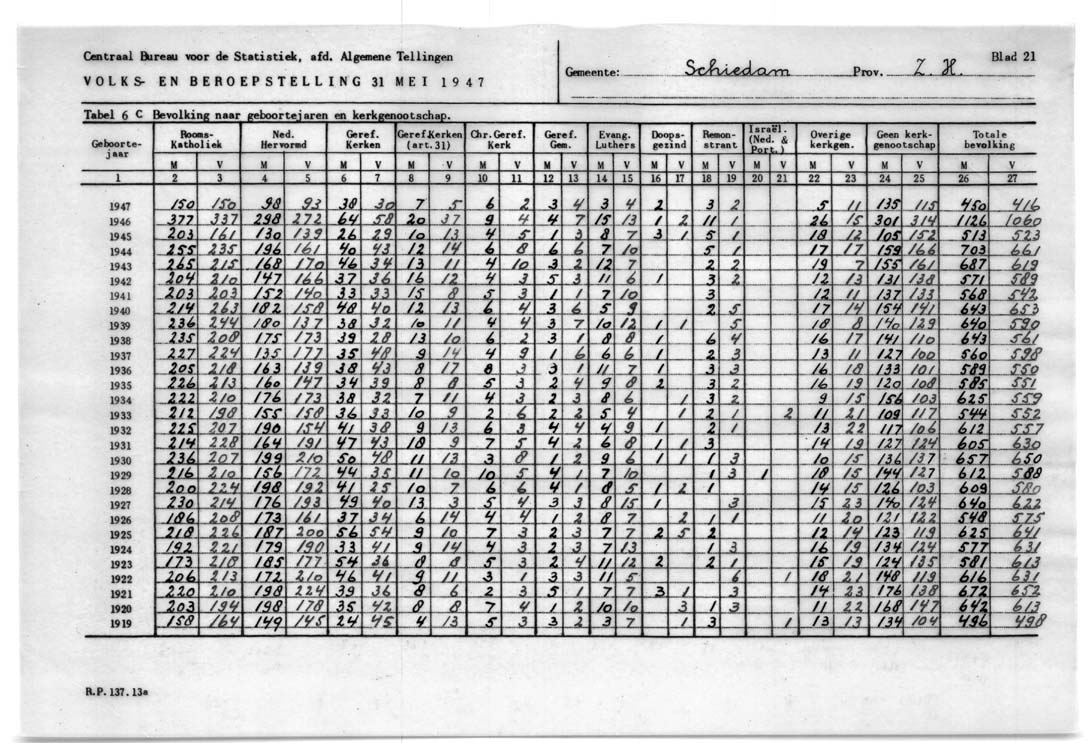 Centraal Bureau voor de Statistiek, afd. Algemene Tellingen
VOLKS- EN BEROEPSTELLING 31 MEI 1947
Gemeente: Schiedam Prov. Z. H. Blad 21
Tabel 6 C Bevolking naar geboortejaren en kerkgenootschap.
Geboorte-jaar Rooms-Katholiek Ned. Hervormd Geref. Kerken Geref.Kerken (art.31) Chr.Geref. Kerk Geref. Gem. Evang. Luthers Doops-gezind Remon-strant Israël. (Ned. & Port.) Overige kerkgen. Geen kerk-genootschap Totale bevolking
M V M V M V M V M V M V M V M V M V M V M V M V M V
1 2 3 4 5 6 7 8 9 10 11 12 13 14 15 16 17 18 19 20 21 22 23 24 25 26 27
1947 150 150 98 93 38 30 7 5 6 2 3 4 3 4 2 3 2 5 11 135 115 450 416
1946 377 337 298 272 64 58 20 37 9 4 4 7 15 13 1 2 11 1 26 15 301 314 1126 1060
1945 203 161 130 139 26 29 10 13 4 5 1 3 8 7 3 1 5 1 18 12 105 152 513 523
1944 255 235 196 161 40 43 12 14 6 8 6 7 10 5 1 17 17 159 166 703 661
1943 265 215 168 170 46 34 13 11 4 10 3 2 12 7 2 2 19 7 155 161 687 619
1942 204 210 147 166 37 36 16 12 4 3 5 3 11 6 1 3 2 12 13 131 138 571 589
1941 203 203 152 140 33 33 15 8 5 3 1 1 7 10 3 12 11 137 133 568 542
1940 214 263 182 158 48 40 12 13 6 4 3 6 5 9 2 5 17 14 154 141 643 653
1939 236 244 180 137 38 32 10 11 4 4 3 7 10 12 1 1 5 18 8 140 129 640 590
1938 235 208 175 173 39 28 13 10 6 2 3 1 8 8 1 6 4 16 17 141 110 643 561
1937 227 224 135 177 35 48 9 14 4 9 1 6 6 6 1 2 3 13 11 127 100 560 598
1936 205 218 163 139 38 43 8 17 8 3 3 1 11 7 1 3 3 16 18 133 101 589 550
1935 226 213 160 147 34 39 8 8 5 3 2 4 9 8 2 3 2 16 19 120 108 585 551
1934 222 210 176 173 38 32 7 11 4 3 2 3 8 6 1 3 2 9 14 156 103 625 559
1933 212 198 155 158 36 33 10 9 2 6 2 2 5 4 1 2 1 2 11 21 109 117 544 552
1932 225 207 190 154 41 38 9 13 6 3 4 4 4 9 1 2 1 13 22 117 106 612 557
1931 214 228 164 191 47 43 18 9 7 5 4 2 6 8 1 1 3 14 19 127 124 605 630
1930 236 207 199 210 50 48 11 13 3 8 1 2 9 6 1 1 1 3 10 15 136 137 657 650
1929 216 210 156 172 44 35 11 10 10 5 4 1 7 10 1 3 1 18 15 144 127 612 588
1928 200 224 198 192 41 25 10 7 6 6 4 1 8 5 1 2 1 14 15 126 103 609 580
1927 230 214 176 193 49 40 13 3 5 4 3 3 8 15 1 3 15 23 140 124 640 622
1926 186 208 173 161 37 34 6 14 4 4 1 2 8 7 2 1 1 11 20 121 122 548 575
1925 218 226 187 200 56 54 9 10 7 3 2 3 7 7 2 5 2 12 14 123 119 625 641
1924 192 221 179 190 33 41 9 14 4 3 2 3 7 13 1 3 16 19 134 124 577 631
1923 173 218 185 177 54 36 8 8 5 3 2 4 11 12 2 2 1 15 19 124 135 581 613
1922 206 213 172 210 46 41 9 11 3 1 3 3 11 5 6 1 18 21 148 119 616 631
1921 220 210 198 224 39 36 8 6 2 3 5 1 7 7 3 1 3 14 23 176 138 672 652
1920 203 194 198 178 35 42 8 8 7 4 1 2 10 10 3 1 3 11 22 168 147 642 613
1919 158 164 149 145 24 45 4 13 5 3 3 2 3 7 1 3 1 13 13 134 104 496 498
R.P. 137. 13a